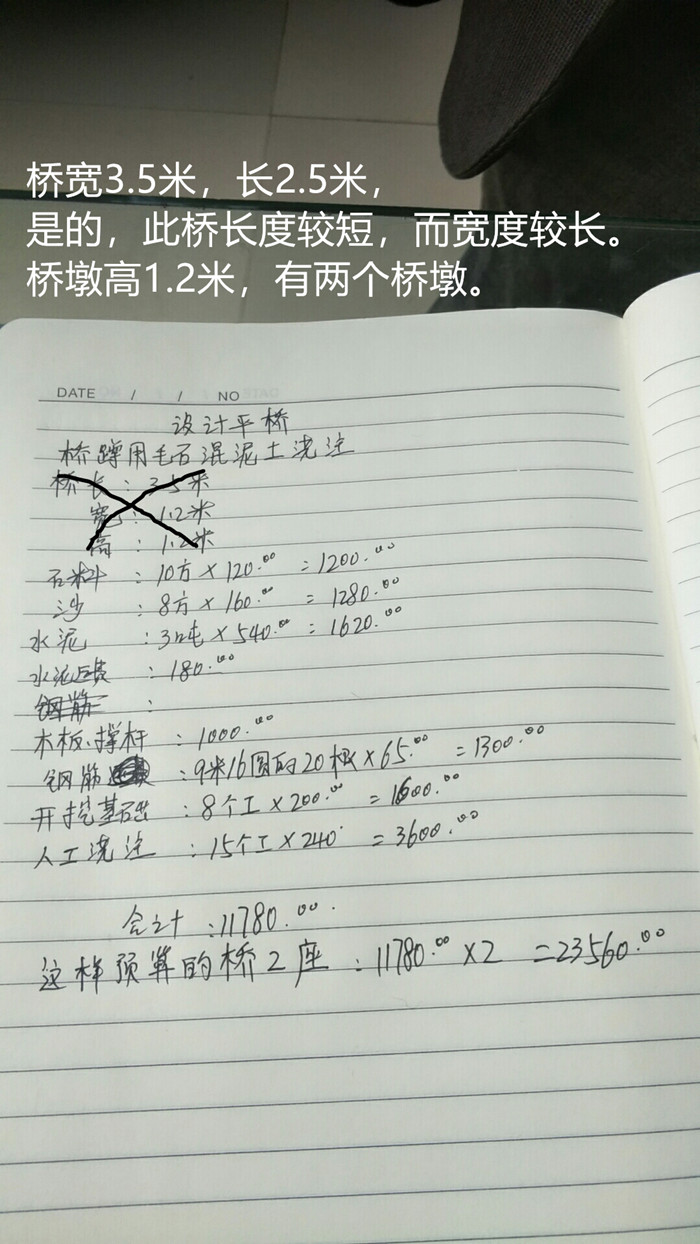 桥宽3.5米，长2.5米，
是的，此桥长度较短，而宽度较长。
桥墩高1.2米，有两个桥墩。
DATE / / NO
设计平桥
桥蹲用毛石混泥土浇注
桥长：3.5米
宽：1.2米
高：1.2米
石料：10方×120.00=1200.00
沙：8方×160.00=1280.00
水泥：3吨×540.00=1620.00
水泥运费：180.00
钢筋：
木板、撑杆：1000.00
钢筋：9米16圆的20根×65.00=1300.00
开挖基础：8个工×200.00=1600.00
人工浇注：15个工×240=3600.00
合计：11780.00.
这样预算的桥2座：11780.00×2=23560.00